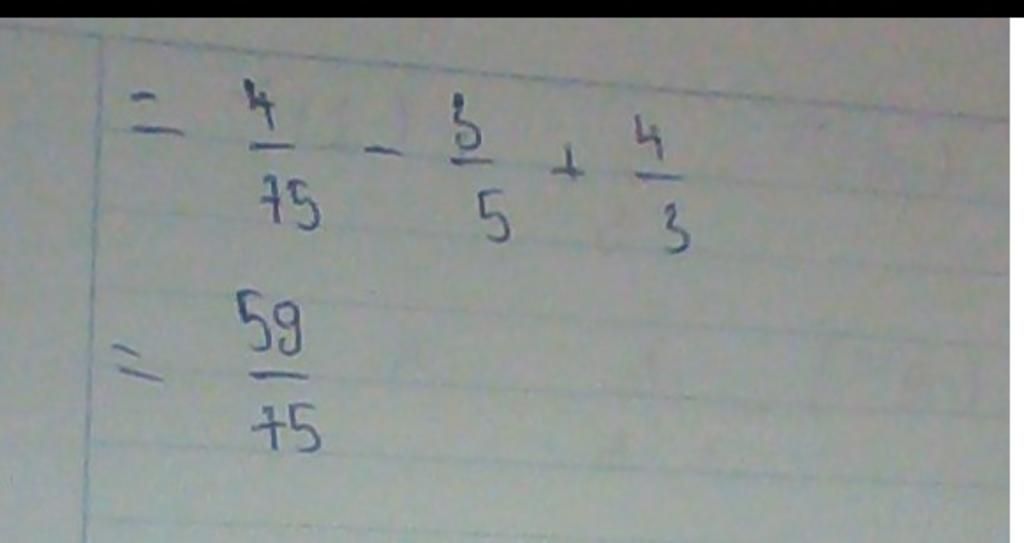 = 4/75 - 3/5 + 4/3
= 59/75